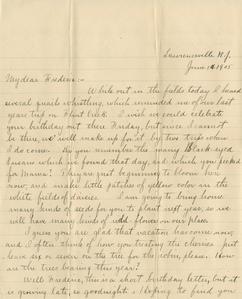 Lawrenceville N.J.
June 14 1905
My dear Frederic:-
While out in the fields today I heard
several quails whistling, which reminded me of our last
years trip on Flint Creek. I wish we could celebrate
your birthday out there Friday, but since I cannot
be there, we will make up for it by two trips when
I do come. Do you remember the many Black-eyed
Susans which we found that day, and which you picked
for Mama? They are just beginning to bloom here
now, and make little patches of yellow color in the
white fields of daisies. I am going to bring home
many kinds of seeds for you to plant next year, so we
will have many kinds of wild flowers in our place.
I guess you are glad that vacation has come now,
and I often think of how you treating the cherries. Just
leave six or seven on the tree for the robin, please. How
are the trees bearing this year?
Well Frederic, this is a short birthday letter, but it
is growing late, so goodnight. Hoping to find you